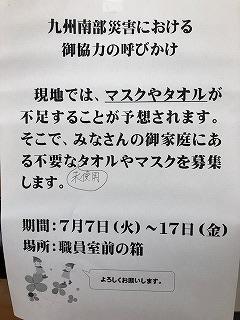 九州南部災害における
御協力の呼びかけ
現地では、マスクやタオルが
不足することが予想されます。
そこで、みなさんの御家庭にあ
る不要なタオルやマスクを募集
します。
未使用
期間：7月7日（火）～17日（金）
場所：職員室前の箱
よろしくお願いします。